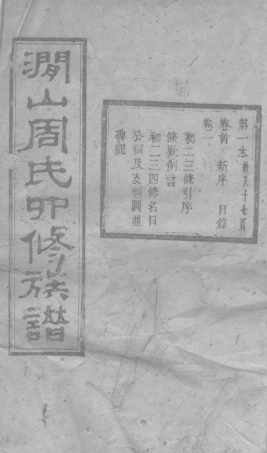 澗山周氏四修族譜
第一本計八十七頁
卷首 新序 目錄
卷一
初二三條引序
條款例言
初二三四修名目
公祠及支祠圖並
碑記